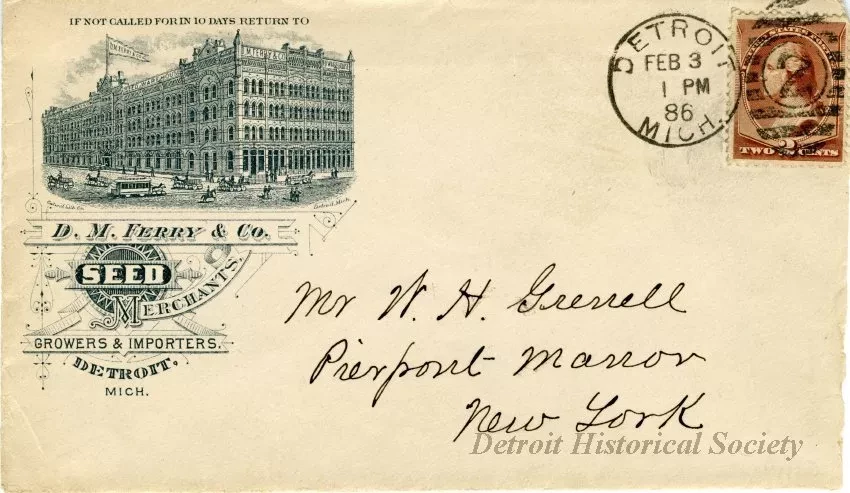 IF NOT CALLED FOR IN 10 DAYS RETURN TO
D.M. FERRY & CO.
D. M. FERRY & CO.
SEED
MERCHANTS,
GROWERS & IMPORTERS.
DETROIT,
MICH.
DETROIT
FEB 3
1 PM
86
MICH.
2
TWO CENTS
Mr W. H. Grenell
Pierpont Manor
New York
Detroit Historical Society